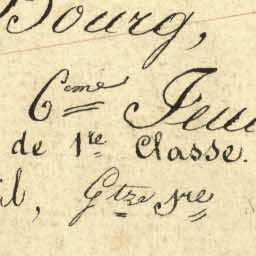 Bourg,
6eme Feui
de 1re Classe.
il, Gtze 1re